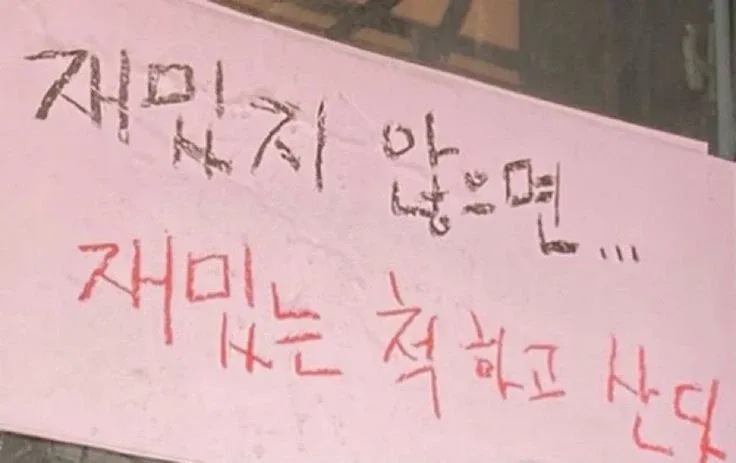 재밉지 않으면...
재밊는 척 하고 산다